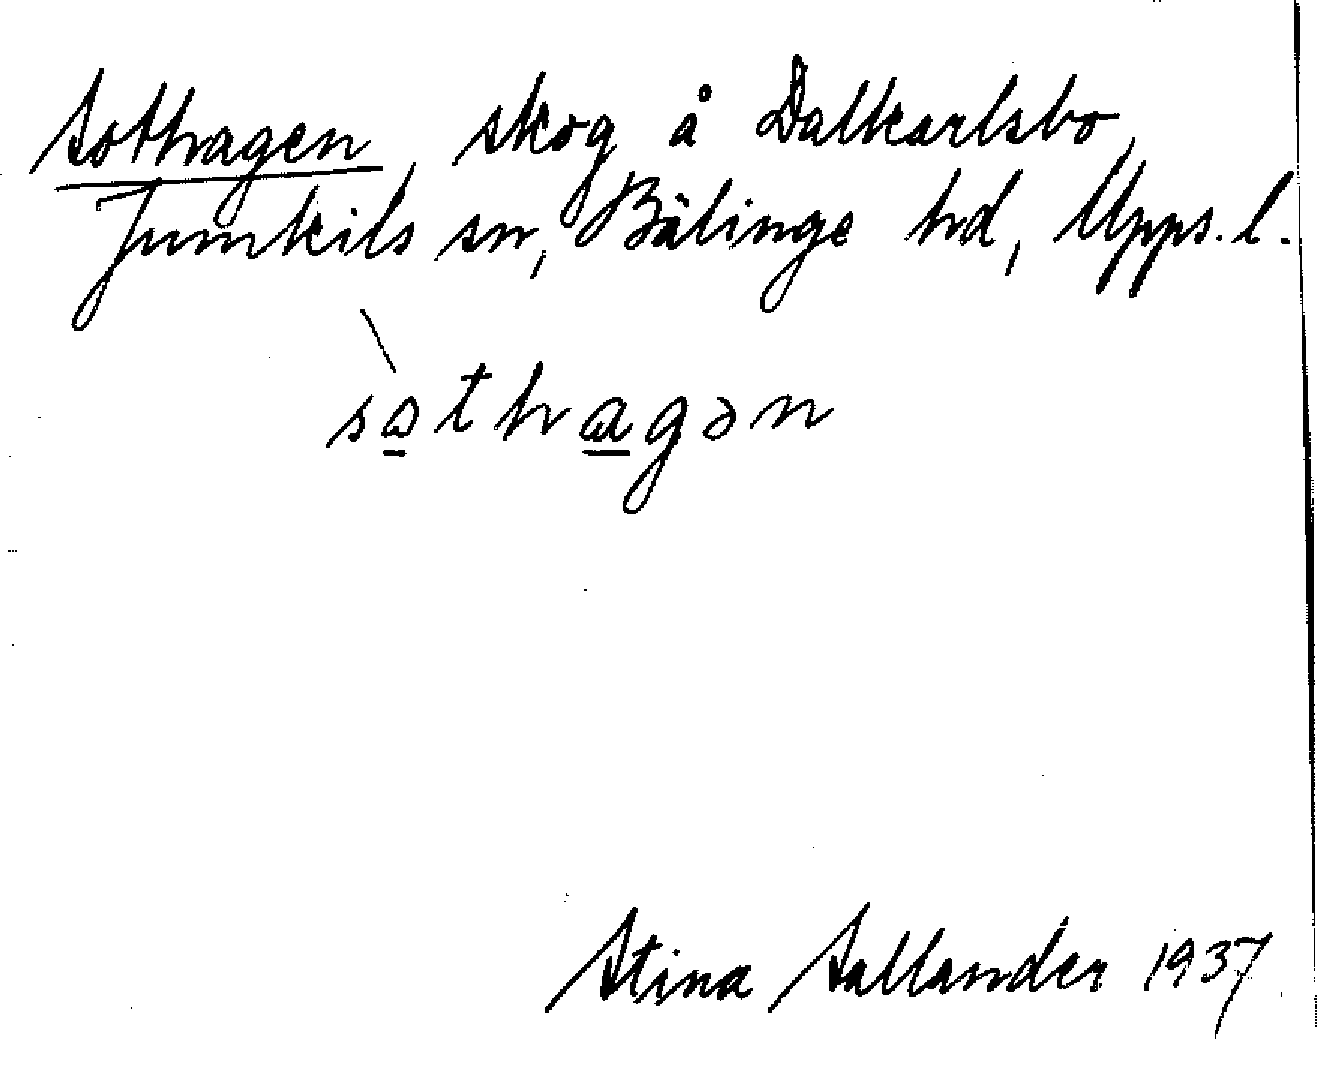 Sothagen, skog å Dalkarlsbo,
Jumkils sn, Bälinge hd, Upps. l.
sòthagən
Stina Sallander 1937